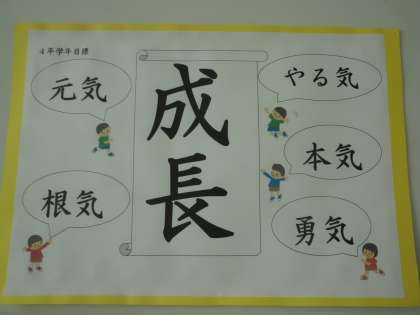 4年学年目標
元気
根気
成長
やる気
本気
勇気